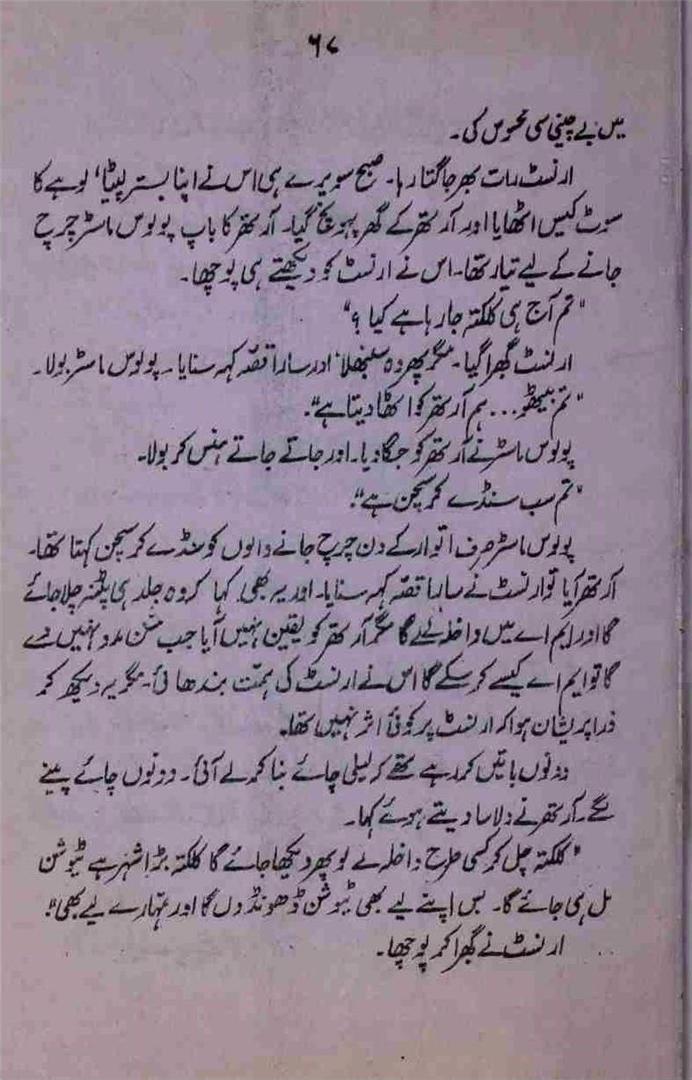 ۶۸
میں بے چینی سی محسوس کی۔
ارنسٹ رات بھر جاگتا رہا۔ صبح سویرے ہی اس نے اپنا بستر لپیٹا، لوہے کا
سوٹ کیس اٹھایا اور آرتھر کے گھر پہونچ گیا۔ آرتھر کا باپ پولوس ماسٹر چرچ
جانے کے لیے تیار تھا۔ اس نے ارنسٹ کو دیکھتے ہی پوچھا۔
"تم آج ہی کلکتہ جا رہا ہے کیا؟"
ارنسٹ گھبرا گیا۔ مگر پھر وہ سنبھلا اور سارا قصہ کہہ سنایا۔ پولوس ماسٹر بولا۔
"تم بیٹھو... ہم آرتھر کو اٹھا دیتا ہے"۔
پولوس ماسٹر نے آرتھر کو جگا دیا۔ اور جاتے جاتے ہنس کر بولا۔
"تم سب سنڈے کرسچن ہے"۔
پولوس ماسٹر صرف اتوار کے دن چرچ جانے والوں کو سنڈے کرسچن کہتا تھا۔
آرتھر آیا تو ارنسٹ نے سارا قصہ کہہ سنایا۔ اور یہ بھی کہا کہ وہ جلد ہی پٹنہ چلا جائے
گا اور ایم اے میں داخلہ لے گا مگر آرتھر کو یقین نہیں آیا جب مشن مدد نہیں دے
گا تو ایم اے کیسے کر سکے گا اس نے ارنسٹ کی ہمت بندھائی۔ مگر یہ دیکھ کر
ذرا پریشان ہوا کہ ارنسٹ پر کوئی اثر نہیں تھا۔
دونوں باتیں کر رہے تھے کہ لیلی چائے بنا کر لے آئی۔ دونوں چائے پینے
لگے۔ آرتھر نے دلاسا دیتے ہوئے کہا۔
"کلکتہ چل کر کسی طرح داخلہ لے لو پھر دیکھا جائے گا کلکتہ بڑا شہر ہے ٹیوشن
مل ہی جائے گا۔ بس اپنے لیے بھی ٹیوشن ڈھونڈوں گا اور تمہارے لیے بھی"۔
ارنسٹ نے گھبرا کر پوچھا۔